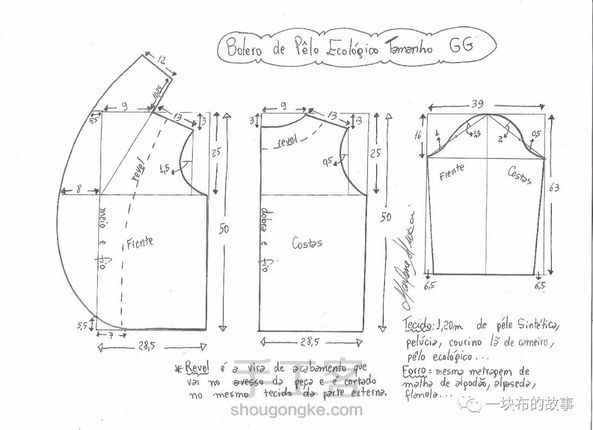 Bolero de Pêlo Ecológico Tamanho GG
12
9
13
3
5,5
25
revel
1,5
8
Frente
meio e fio
50
5,5
7
28,5
9
13
3
3
revel
0,5
25
dobra e fio
Costas
50
28,5
39
16
1
1,5
2
0,5
Frente
Costas
63
6,5
6,5
* Revel é a vira de acabamento que
vai no avesso da peça e é cortado
no mesmo tecido da parte externa.
Tecido: 1,20m de pêle Sintética,
pelúcia, courino lã de carneiro,
pêlo ecológico...
Forro: mesma metragem de
malha de algodão, alpaseda,
flanela...
手工客
shougongke.com
一块布的故事